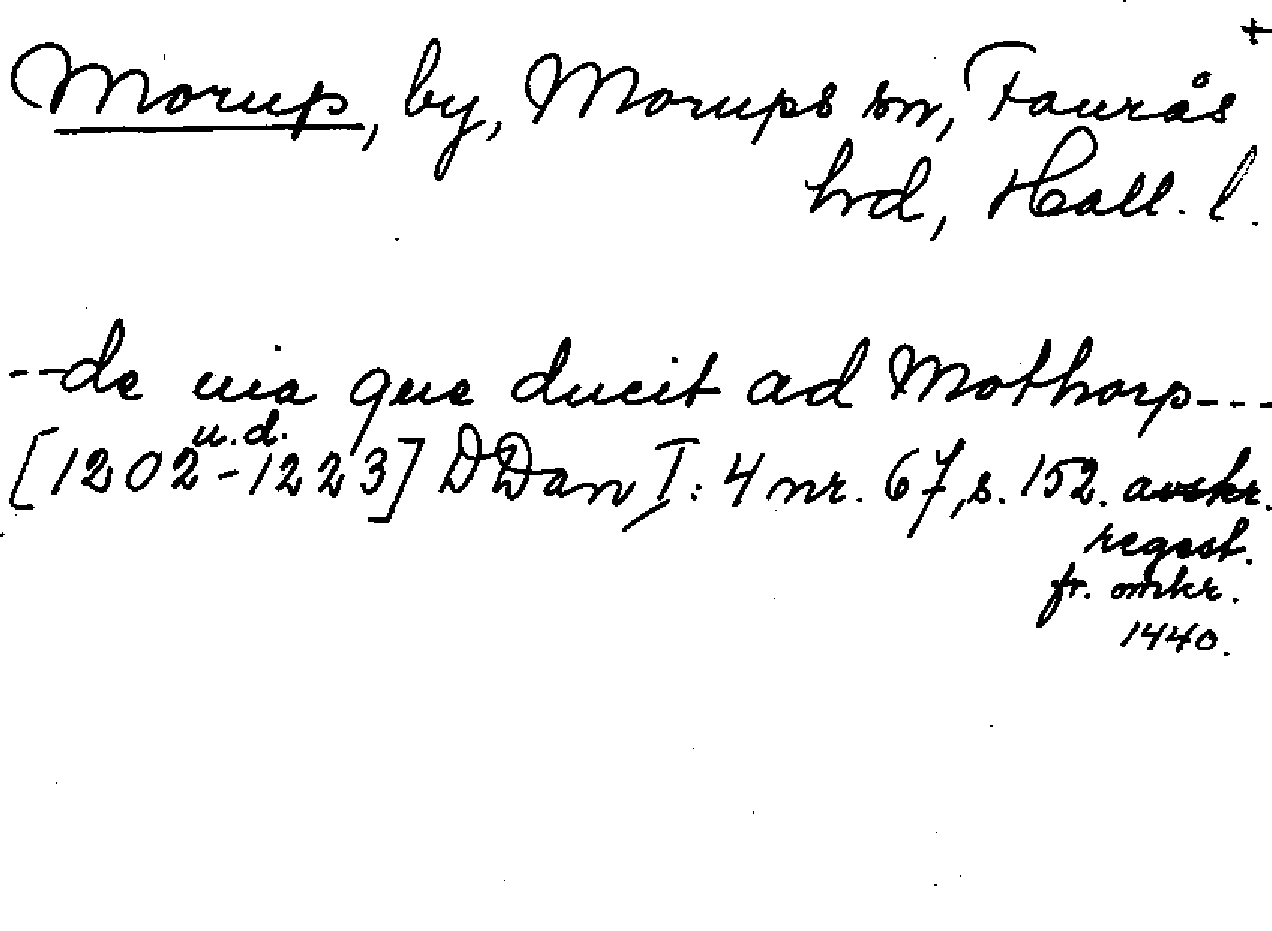 +
Morup, by, Morups sn, Faurås
hrd, Hall. l.
--de uia que ducit ad Mothorp---
u.d.
[1202-1223] DDan I:4 nr. 67, s. 152. avskr.
regest.
fr. omkr.
1440.